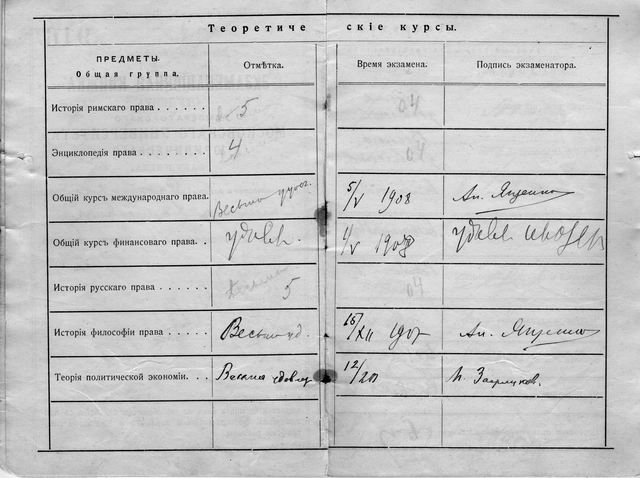 Теоретическіе курсы.
ПРЕДМЕТЫ.
Общая группа.
Отмѣтка.
Время экзамена.
Подпись экзаменатора.
Исторія римскаго права . . . . . .
5
04
Энциклопедія права . . . . . . . .
4
04
Общій курсъ международнаго права.
Весьма
5/V 1908
Ал. Ященко
Общій курсъ финансоваго права. .
удовл.
4/V 1908
удовл
Исторія русскаго права . . . . . .
Весьма
5
04
Исторія философіи права . . . . .
Весьма уд.
16/XII 1907
Ал. Ященко
Теорія политической экономіи. . . .
Весьма удовлет
12/